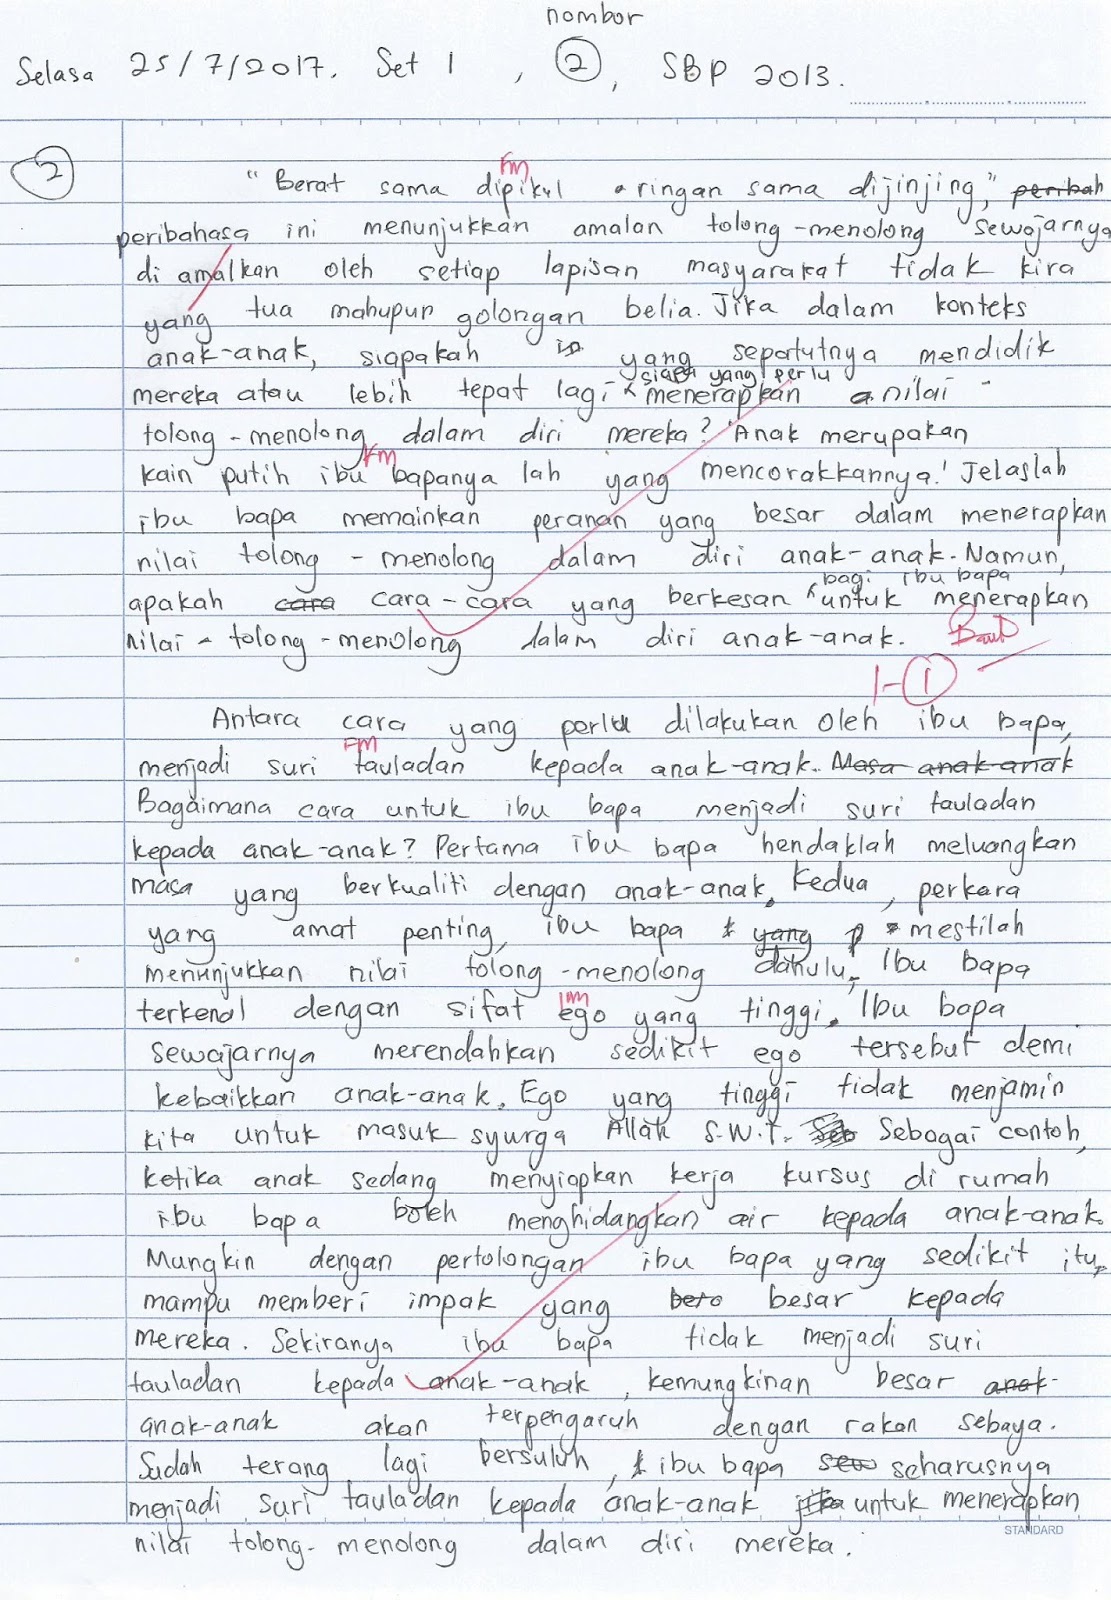 nombor
Selasa 25/7/2017. Set 1 , 2 , SBP 2013.
2
FM
"Berat sama dipikul ringan sama dijinjing," peribah
peribahasa ini menunjukkan amalan tolong-menolong sewajarnya
di amalkan oleh setiap lapisan masyarakat tidak kira
yang tua mahupun golongan belia. Jika dalam konteks
anak-anak, siapakah yang sepatutnya mendidik
siapa yang perlu
mereka atau lebih tepat lagi menerapkan nilai
tolong-menolong dalam diri mereka? 'Anak merupakan
FM
kain putih ibu bapanya lah yang mencorakkannya.' Jelaslah
ibu bapa memainkan peranan yang besar dalam menerapkan
nilai tolong-menolong dalam diri anak-anak. Namun,
bagi ibu bapa
apakah cara cara-cara yang berkesan untuk menerapkan
nilai tolong-menolong dalam diri anak-anak.
1-1
Antara cara yang perlu dilakukan oleh ibu bapa,
FM
menjadi suri tauladan kepada anak-anak. Masa anak-anak
Bagaimana cara untuk ibu bapa menjadi suri tauladan
kepada anak-anak? Pertama ibu bapa hendaklah meluangkan
masa yang berkualiti dengan anak-anak. Kedua, perkara
yang amat penting, ibu bapa yang p mestilah
menunjukkan nilai tolong-menolong dahulu. Ibu bapa
IM
terkenal dengan sifat ego yang tinggi. Ibu bapa
sewajarnya merendahkan sedikit ego tersebut demi
kebaikkan anak-anak. Ego yang tinggi tidak menjamin
kita untuk masuk syurga Allah S.W.T. Sebagai contoh,
ketika anak sedang menyiapkan kerja kursus di rumah
ibu bapa boleh menghidangkan air kepada anak-anak.
Mungkin dengan pertolongan ibu bapa yang sedikit itu,
mampu memberi impak yang besar kepada
mereka. Sekiranya ibu bapa tidak menjadi suri
tauladan kepada anak-anak, kemungkinan besar anak-
anak-anak akan terpengaruh dengan rakan sebaya.
Sudah terang lagi bersuluh, ibu bapa seharusnya
menjadi suri tauladan kepada anak-anak untuk menerapkan
STANDARD
nilai tolong-menolong dalam diri mereka.